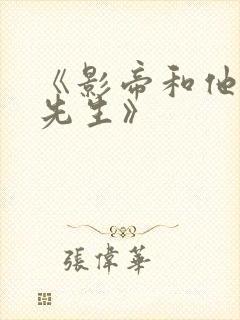 《影帝和他
先生》
張偉華